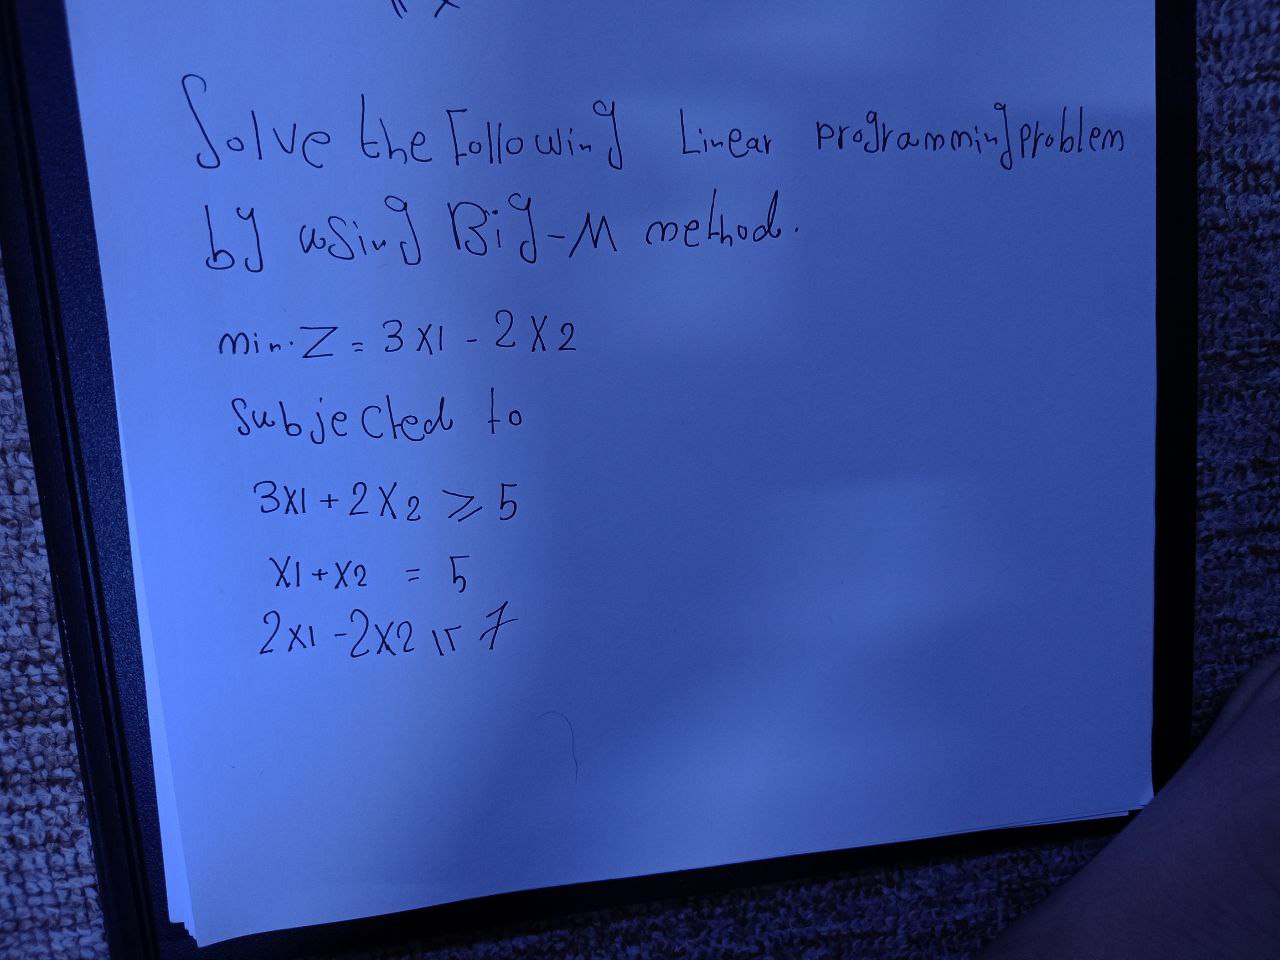 Solve the Following Linear programming problem
by using Big-M method.
min. Z = 3X1 - 2X2
Subjected to
3X1 + 2X2 ≥ 5
X1 + X2 = 5
2X1 - 2X2 7